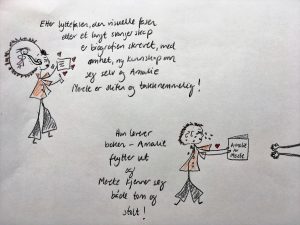 Etter lyttefasen, den visuelle fasen
etter et langt svangerskap
er biografien skrevet, med
ømhet, ny kunnskap om
seg selv og Amalie
Merete er sliten og takknemmelig!
Hun leverer
boken – Amalie
flytter ut
og
Merete kjenner seg
både tom og
stolt!
Amalie